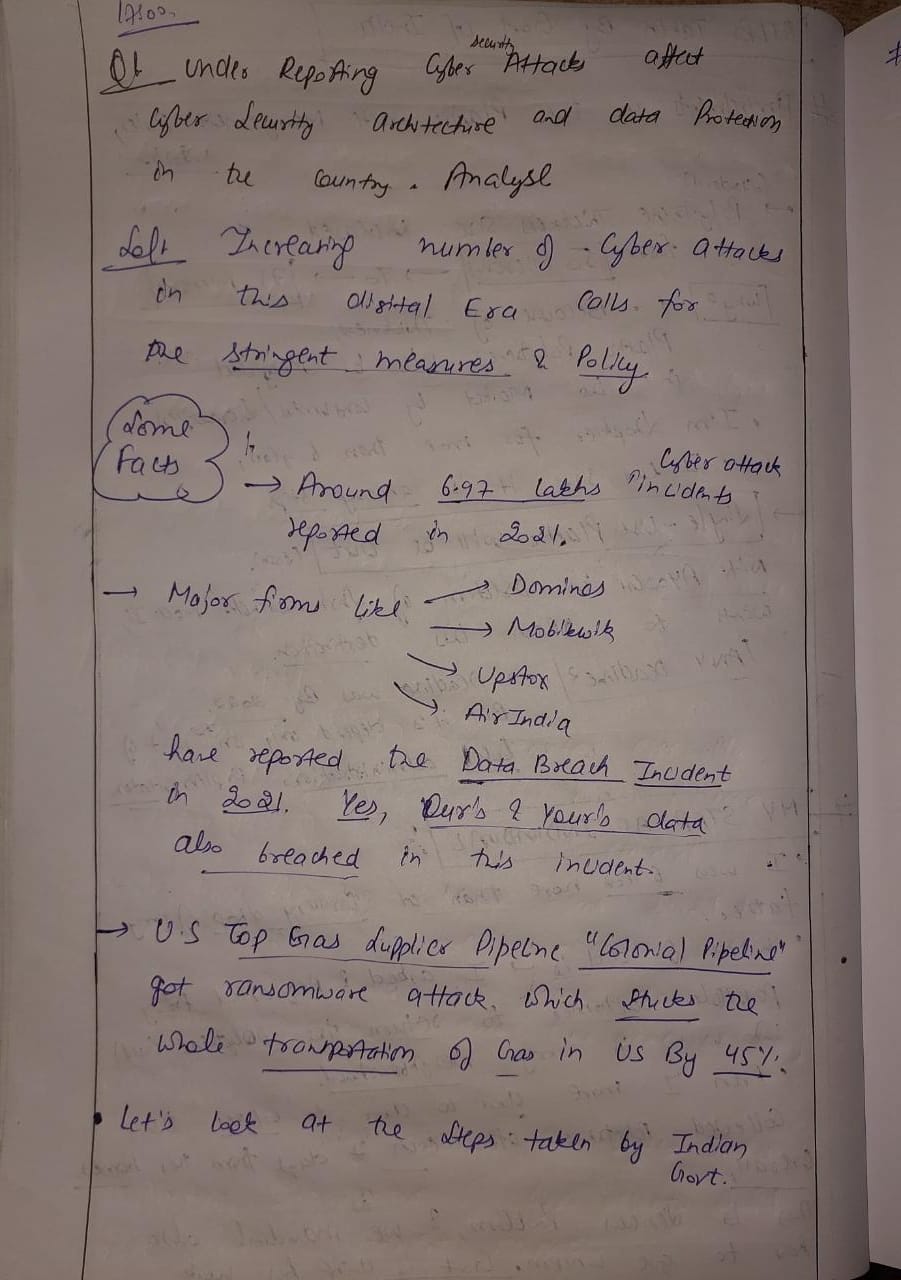 Q1 Under Reporting Cyber security Attacks affect
Cyber Security architecture and data Protection
in the Country. Analyse
Sol: Increasing number of Cyber attacks
in this digital Era calls for
the stringent measures & Policy
Some
Facts
→ Around 6.97 lakhs Cyber attack incidents
reported in 2021.
→ Major firms like → Dominos
→ Mobikwik
→ Upstox
→ Air India
have reported the Data Breach Incident
in 2021. Yes, Our's & Your's data
also breached in this incident.
→ U.S Top Gas Supplier Pipeline "Colonial Pipeline"
got ransomware attack, which stucks the
whole transportation of Gas in US By 45%.
• Let's look at the steps taken by Indian
Govt.